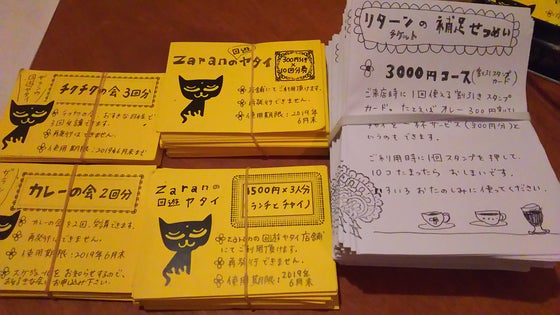 チクチクの会 3回分
3回受講できます。
再発行はできません。
使用期限:2019年6月末まで
Zaranの
回遊
ヤタイ
300円分
×
10回分券
店舗にてご利用頂けます。
再発行できません。
使用期限:2019年
6月末
カレーの会 2回分
カレーの会を2回、受講できます。
再発行できません。
使用期限:2019年6月末
スケジュールをお知らせするので、
お好きな会にお申込み下さい。
Zaranの
回遊ヤタイ
1500円×3人分
ランチとチャイ
Zaranの回遊ヤタイ店舗
にてご利用頂けます。
再発行できません。
使用期限:2019年
6月末
リターンの補足せつめい
チケット
3000円コース
ご来店時に1回使える割引きスタンプ
カード。たとえばオレー300
チャイを一杯サービス(300円分)と
いうのもできます。
ご利用時に1回スタンプを押して、
10コたまったら おしまいです。
いろいろ おたのしみに使ってください。